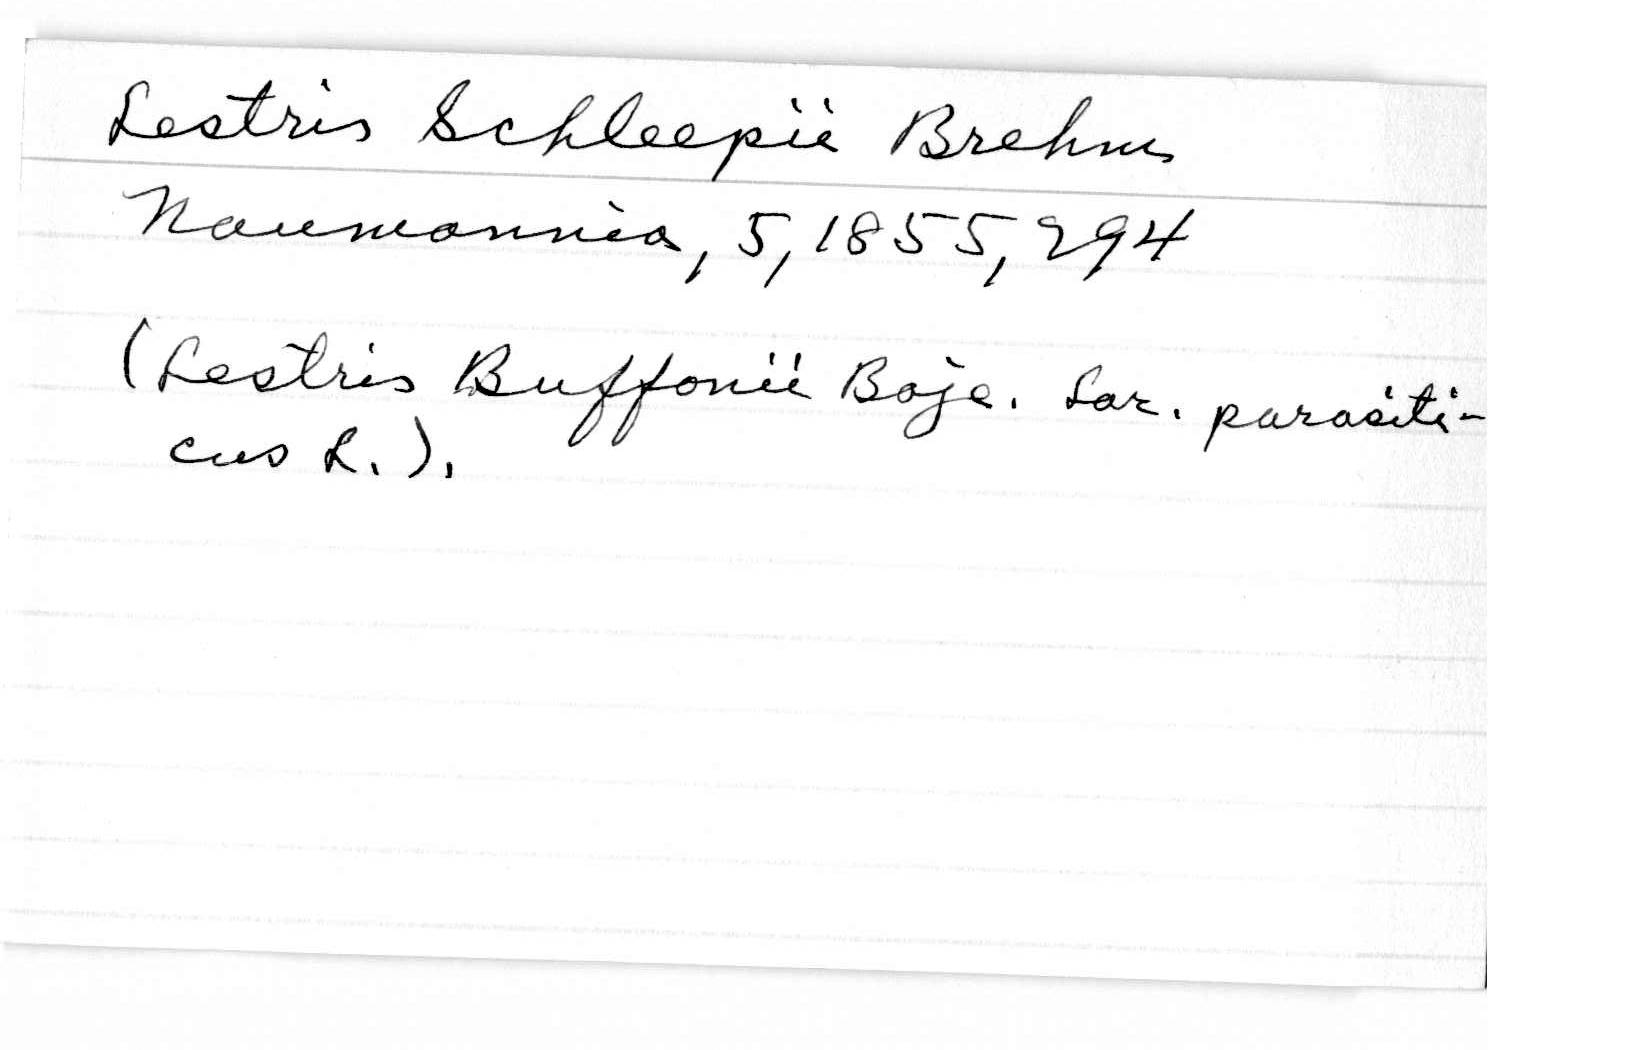 Lestris Schleepii Brehm
Naumannia, 5, 1855, 294
(Lestris Buffonii Boje. Lar. parasiti-
cus L.).